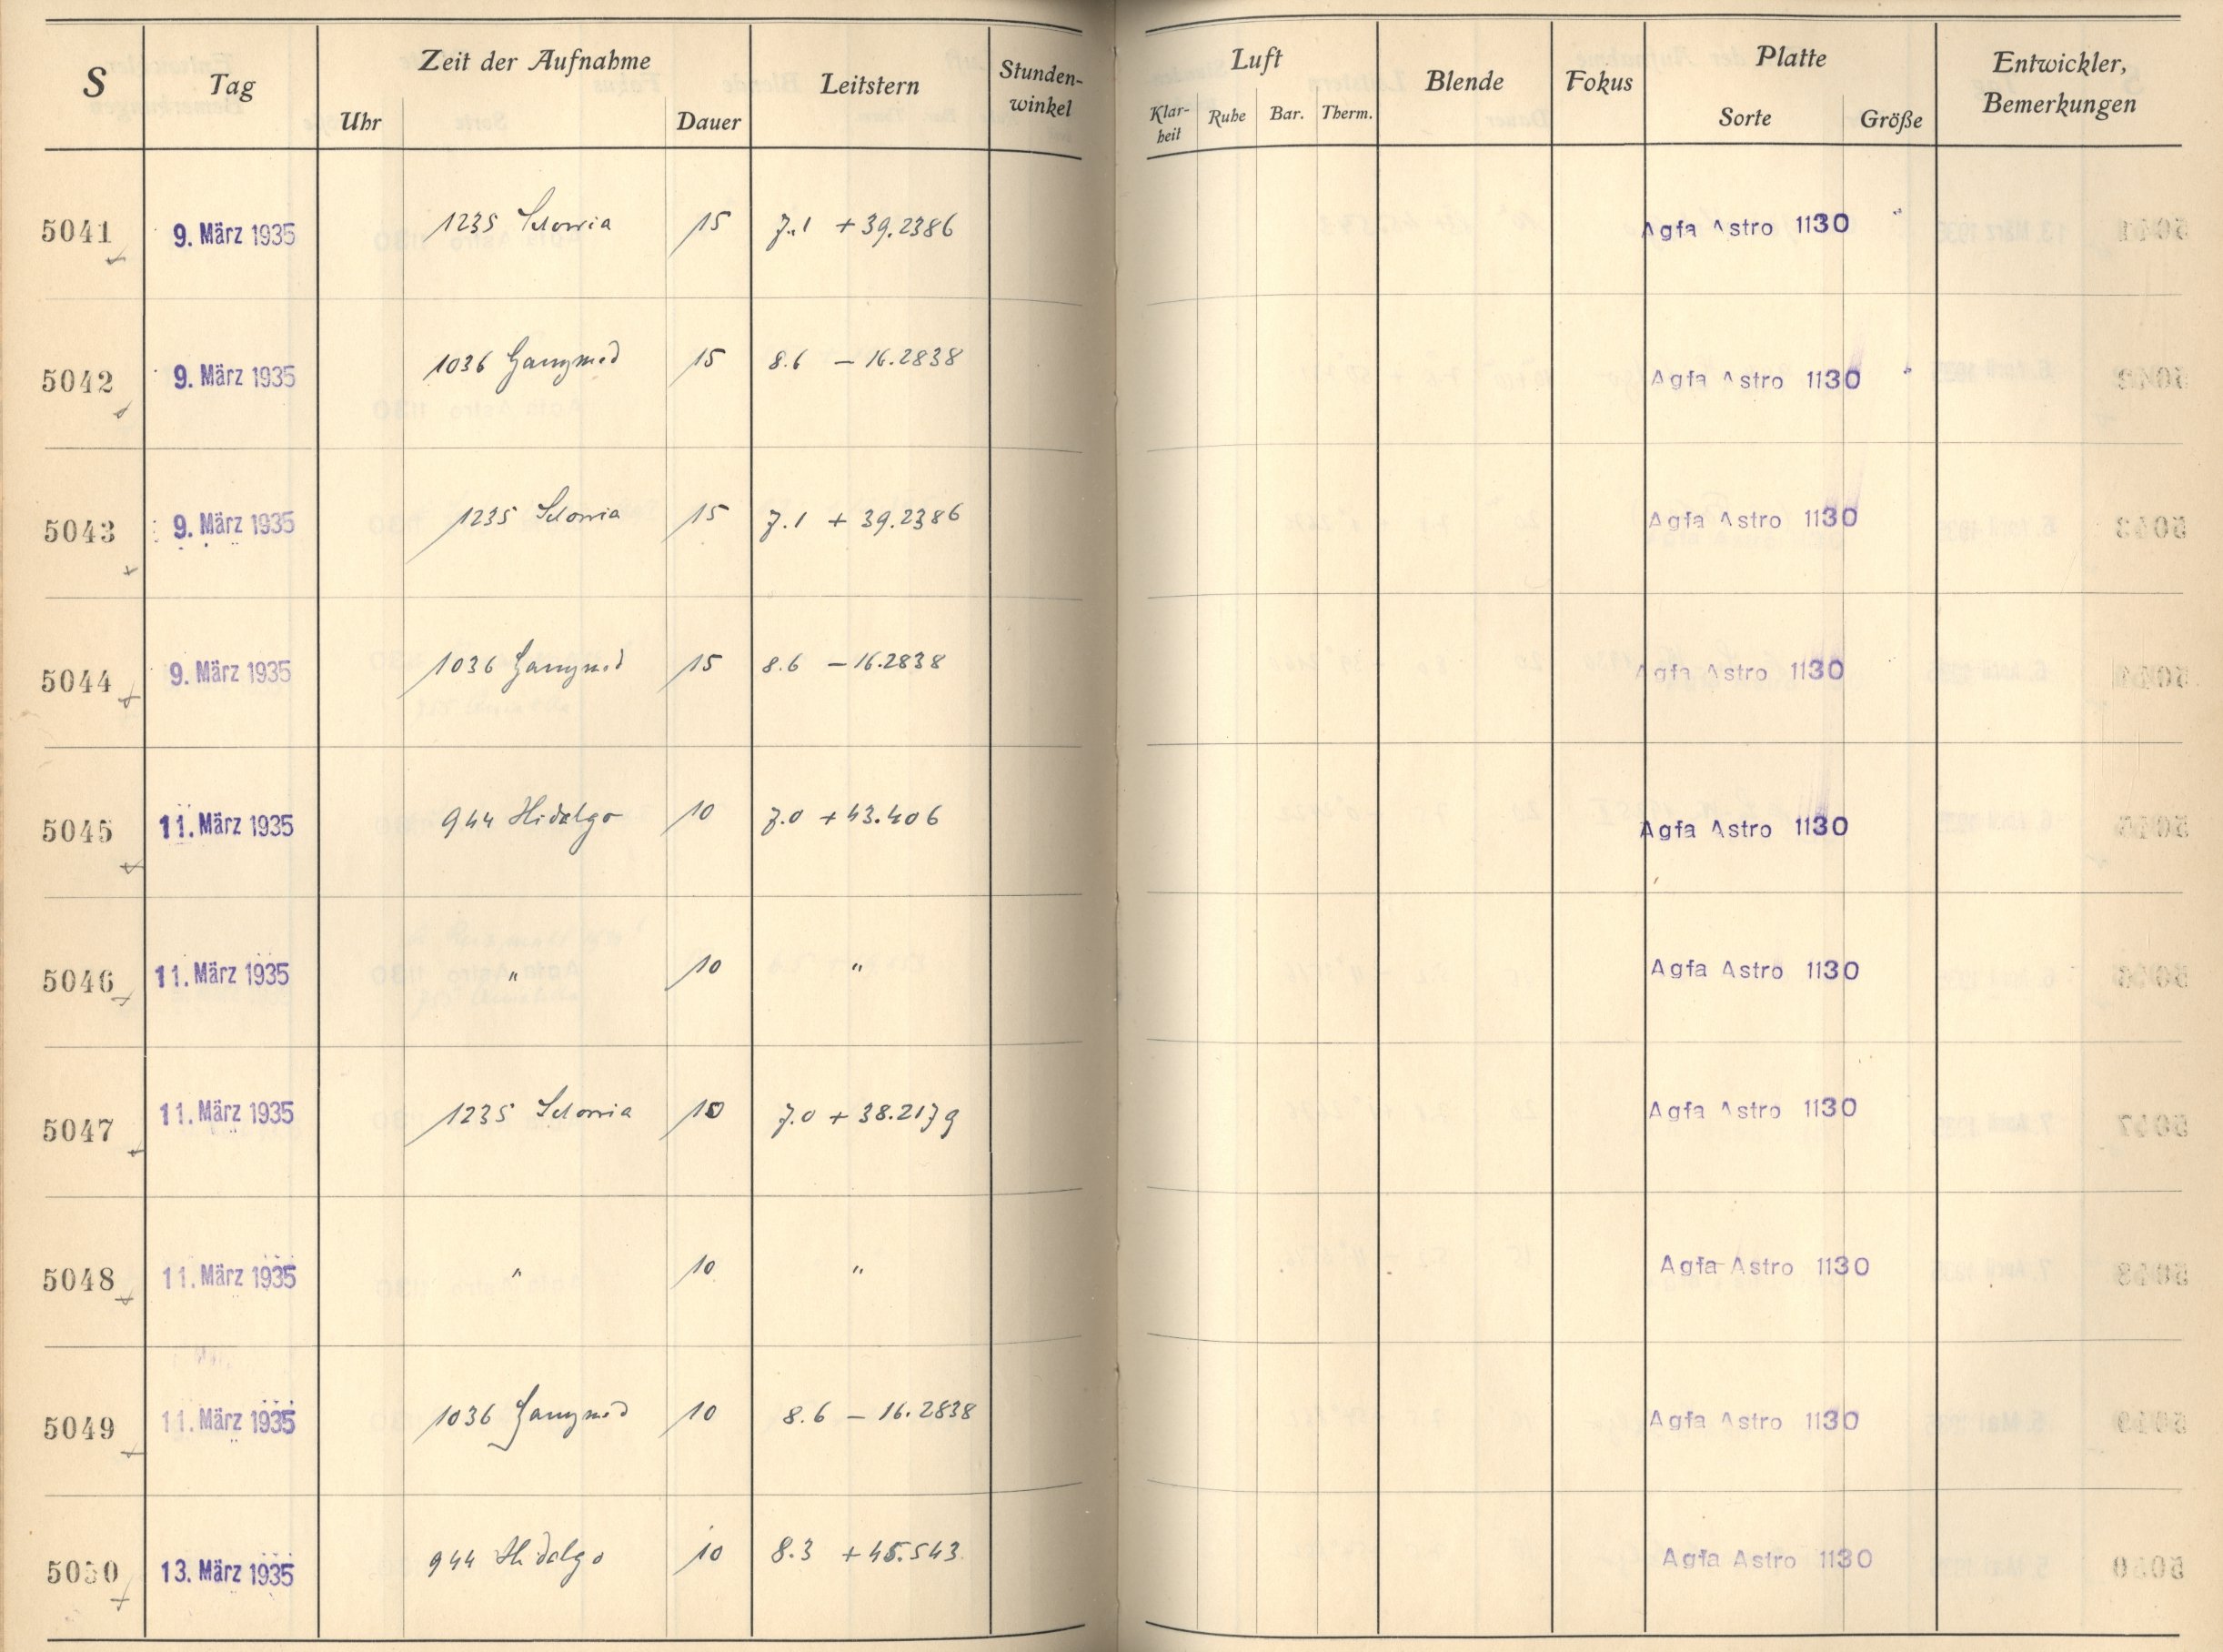 S Tag Zeit der Aufnahme Leitstern Stunden-winkel Luft Blende Fokus Platte Entwickler, Bemerkungen
Uhr Dauer Klar-heit Ruhe Bar. Therm. Sorte Größe
5041 9. März 1935 1235 Schorria 15 7.1 +39.2386 Agfa Astro 1130
5042 9. März 1935 1036 Ganymed 15 8.6 – 16.2838 Agfa Astro 1130
5043 9. März 1935 1235 Schorria 15 7.1 + 39.2386 Agfa Astro 1130
5044 9. März 1935 1036 Ganymed 15 8.6 – 16.2838 Agfa Astro 1130
5045 11. März 1935 944 Hidalgo 10 7.0 +43.406 Agfa Astro 1130
5046 11. März 1935 " 10 " Agfa Astro 1130
5047 11. März 1935 1235 Schorria 10 7.0 + 38.2179 Agfa Astro 1130
5048 11. März 1935 " 10 " Agfa Astro 1130
5049 11. März 1935 1036 Ganymed 10 8.6 – 16.2838 Agfa Astro 1130
5050 13. März 1935 944 Hidalgo 10 8.3 +45.543 Agfa Astro 1130